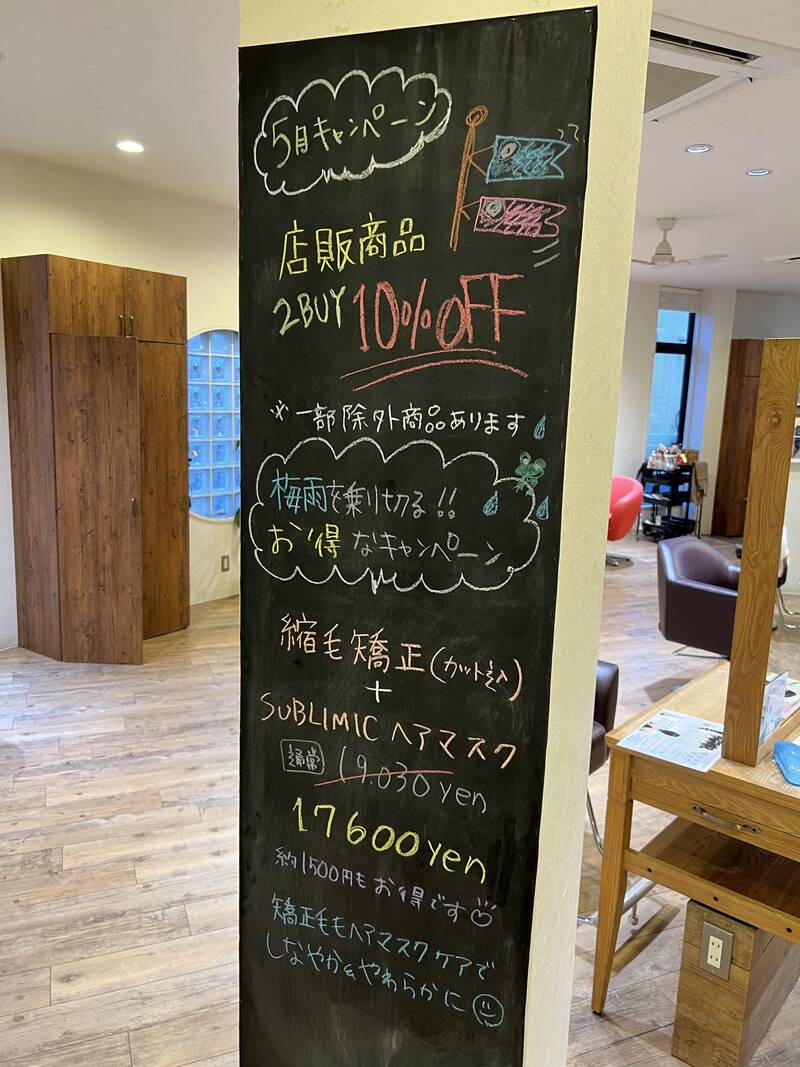 5月キャンペーン
店販商品
2BUY 10%OFF
※一部除外商品あります
梅雨を乗り切る!!
お得なキャンペーン
縮毛矯正(カット込)
+
SUBLIMIC ヘアマスク
通常 19.030yen
17600yen
約1500円もお得です
矯正毛もヘアマスクケアで
しなやか&やわらかに